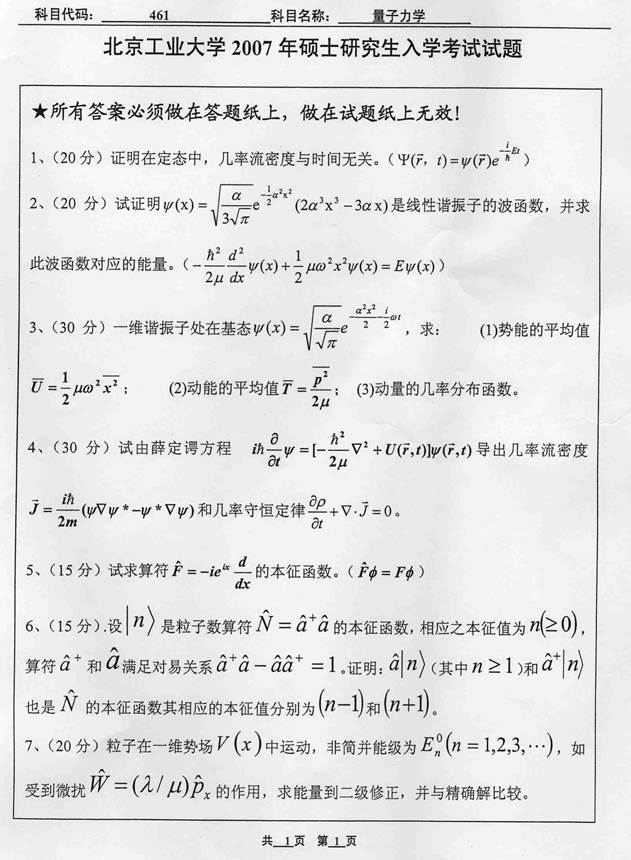 科目代码: 461 科目名称: 量子力学
北京工业大学 2007 年硕士研究生入学考试试题
★所有答案必须做在答题纸上，做在试题纸上无效!
1、(20 分) 证明在定态中，几率流密度与时间无关。( $\Psi(\vec{r},t)=\psi(\vec{r})e^{-\frac{i}{\hbar}Et}$ )
2、(20 分) 试证明 $\psi(x)=\sqrt{\frac{\alpha}{3\sqrt{\pi}}}e^{-\frac{1}{2}\alpha^2x^2}(2\alpha^3x^3-3\alpha x)$ 是线性谐振子的波函数，并求
此波函数对应的能量。( $-\frac{\hbar^2}{2\mu}\frac{d^2}{dx}\psi(x)+\frac{1}{2}\mu\omega^2x^2\psi(x)=E\psi(x)$ )
3、(30 分) 一维谐振子处在基态 $\psi(x)=\sqrt{\frac{\alpha}{\sqrt{\pi}}}e^{-\frac{\alpha^2x^2}{2}-\frac{i}{2}\omega t}$ ，求: (1)势能的平均值
$\overline{U}=\frac{1}{2}\mu\omega^2\overline{x^2}$ ; (2)动能的平均值 $\overline{T}=\frac{\overline{p^2}}{2\mu}$ ; (3)动量的几率分布函数。
4、(30 分) 试由薛定谔方程 $i\hbar\frac{\partial}{\partial t}\psi=[-\frac{\hbar^2}{2\mu}\nabla^2+U(\vec{r},t)]\psi(\vec{r},t)$ 导出几率流密度
$\vec{J}=\frac{i\hbar}{2m}(\psi\nabla\psi*-\psi*\nabla\psi)$ 和几率守恒定律 $\frac{\partial\rho}{\partial t}+\nabla\cdot\vec{J}=0$ 。
5、(15 分) 试求算符 $\hat{F}=-ie^{ix}\frac{d}{dx}$ 的本征函数。( $\hat{F}\phi=F\phi$ )
6、(15 分).设 $|n\rangle$ 是粒子数算符 $\hat{N}=\hat{a}^+\hat{a}$ 的本征函数，相应之本征值为 $n(\geq 0)$，
算符 $\hat{a}^+$ 和 $\hat{a}$ 满足对易关系 $\hat{a}^+\hat{a}-\hat{a}\hat{a}^+=1$。证明: $\hat{a}|n\rangle$ (其中 $n\geq 1$)和 $\hat{a}^+|n\rangle$
也是 $\hat{N}$ 的本征函数其相应的本征值分别为 $(n-1)$ 和 $(n+1)$。
7、(20 分) 粒子在一维势场 $V(x)$ 中运动，非简并能级为 $E_n^0(n=1,2,3,\cdots)$，如
受到微扰 $\hat{W}=(\lambda/\mu)\hat{p}_x$ 的作用，求能量到二级修正，并与精确解比较。
共 1 页 第 1 页